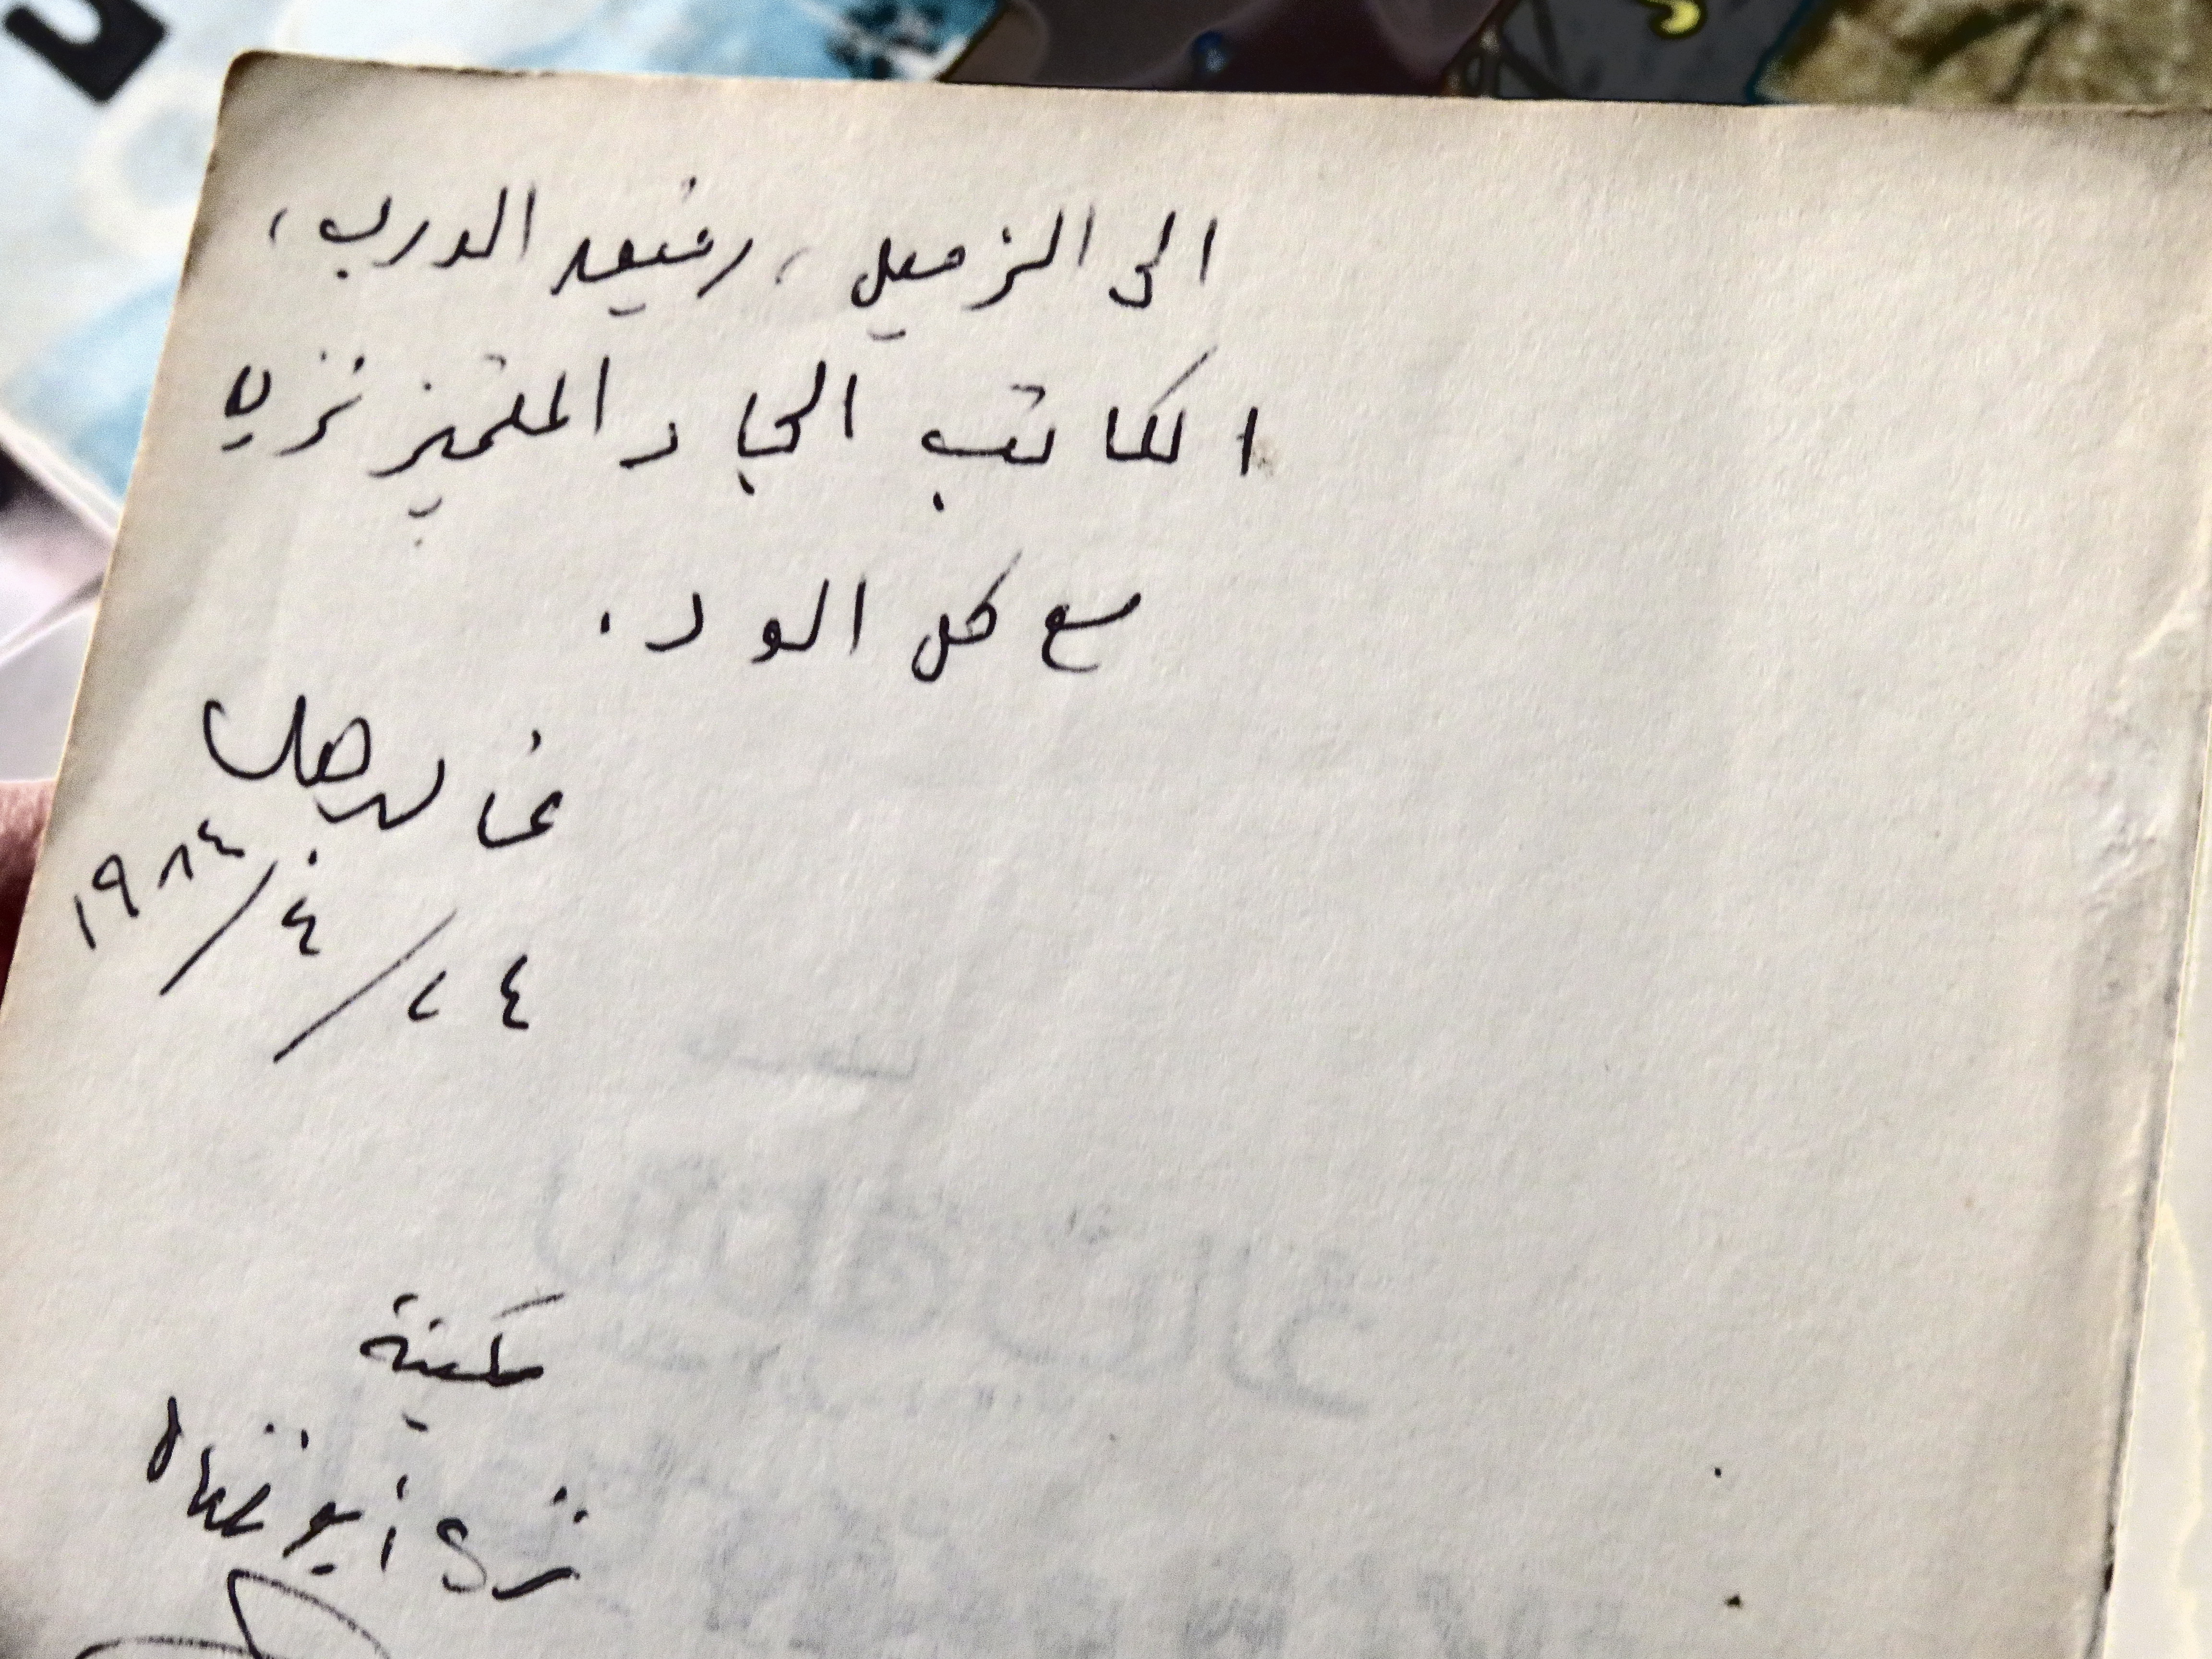 الى الزميل، رفيق الدرب،
الكاتب الجاد المتميز نزيه
مع كل الود.
غالب هلسا
٢٤/٤/١٩٨٤
مكتبة
نزيه أبو نضال